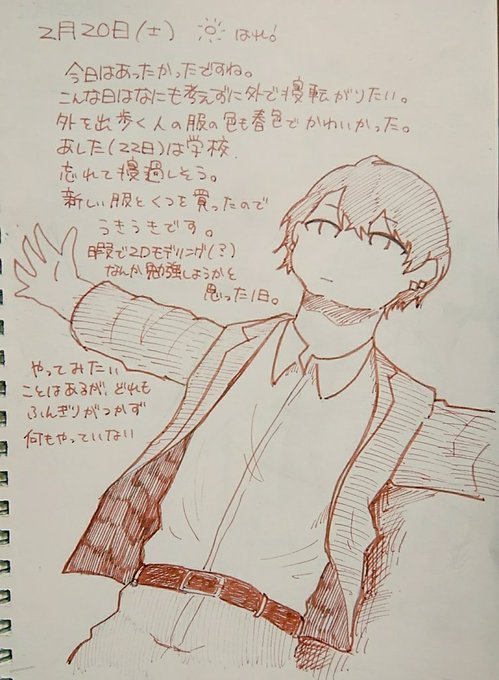 2月20日(土) はれ!
今日はあったかったですね。
こんな日はなにも考えずに外で寝転がりたい。
外を出歩く人の服の色も春色でかわいかった。
あした(22日)は学校
忘れて寝過しそう。
新しい服とくつを買ったので
うきうきです。
暇で2Dモデリング(?)
なんか勉強しようかと
思った1日。
やってみたい
ことはあるが、どれも
ふんぎりがつかず
何もやっていない